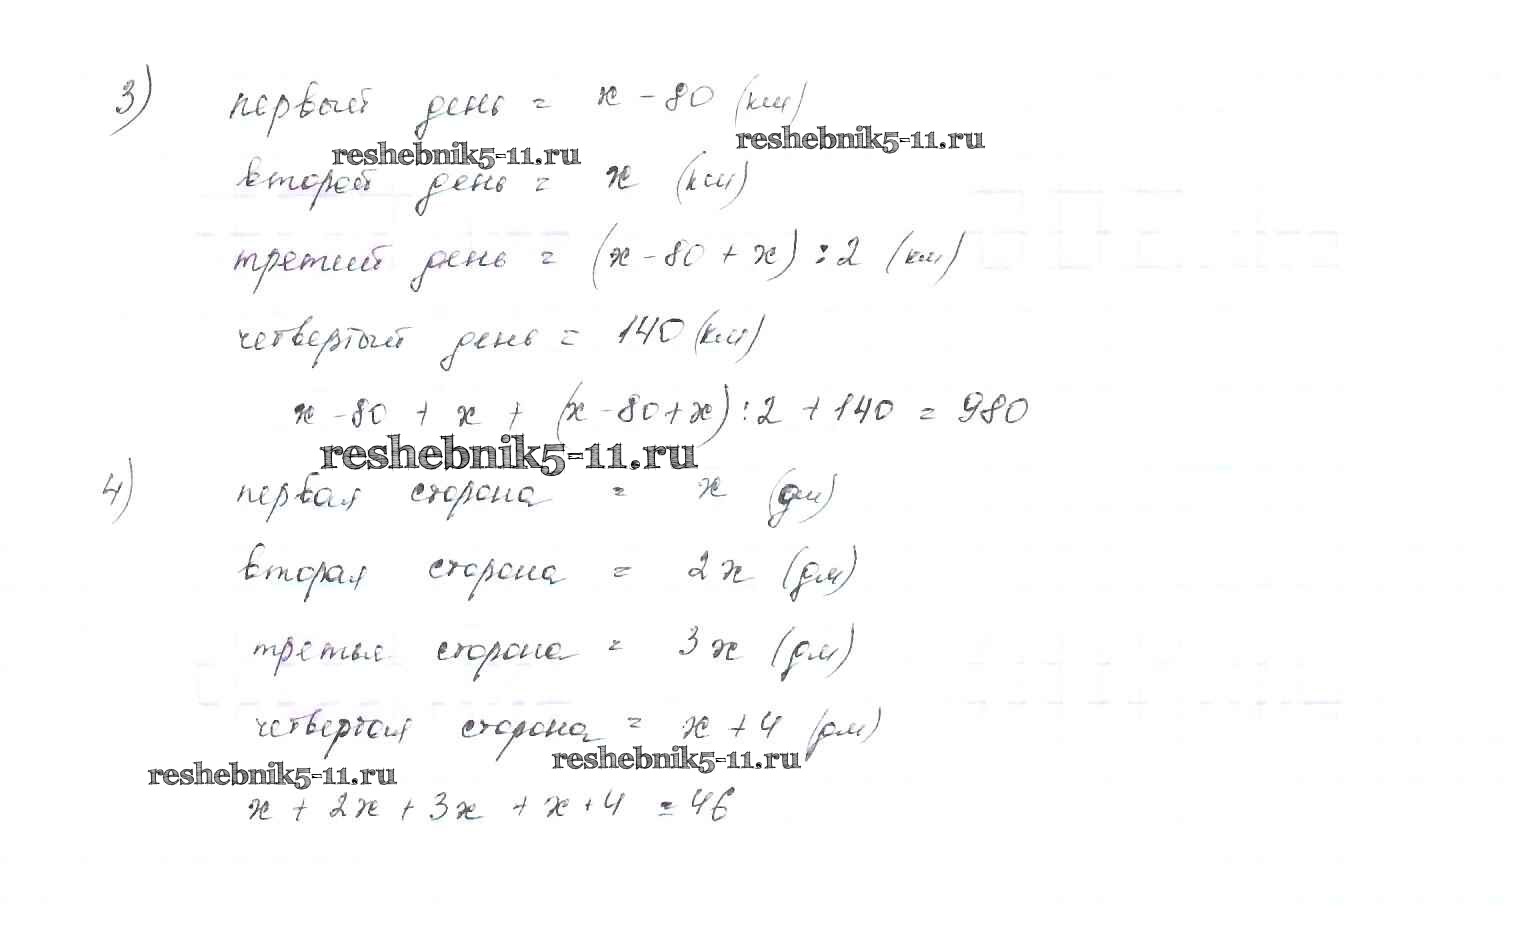 3) первый день = x - 80 (км)
reshebnik5-11.ru
reshebnik5-11.ru
второй день = x (км)
третий день = (x - 80 + x) : 2 (км)
четвертый день = 140 (км)
x - 80 + x + (x - 80 + x) : 2 + 140 = 980
reshebnik5-11.ru
4) первая сторона = x (дм)
вторая сторона = 2x (дм)
третья сторона = 3x (дм)
четвертая сторона = x + 4 (дм)
reshebnik5-11.ru
reshebnik5-11.ru
x + 2x + 3x + x + 4 = 46